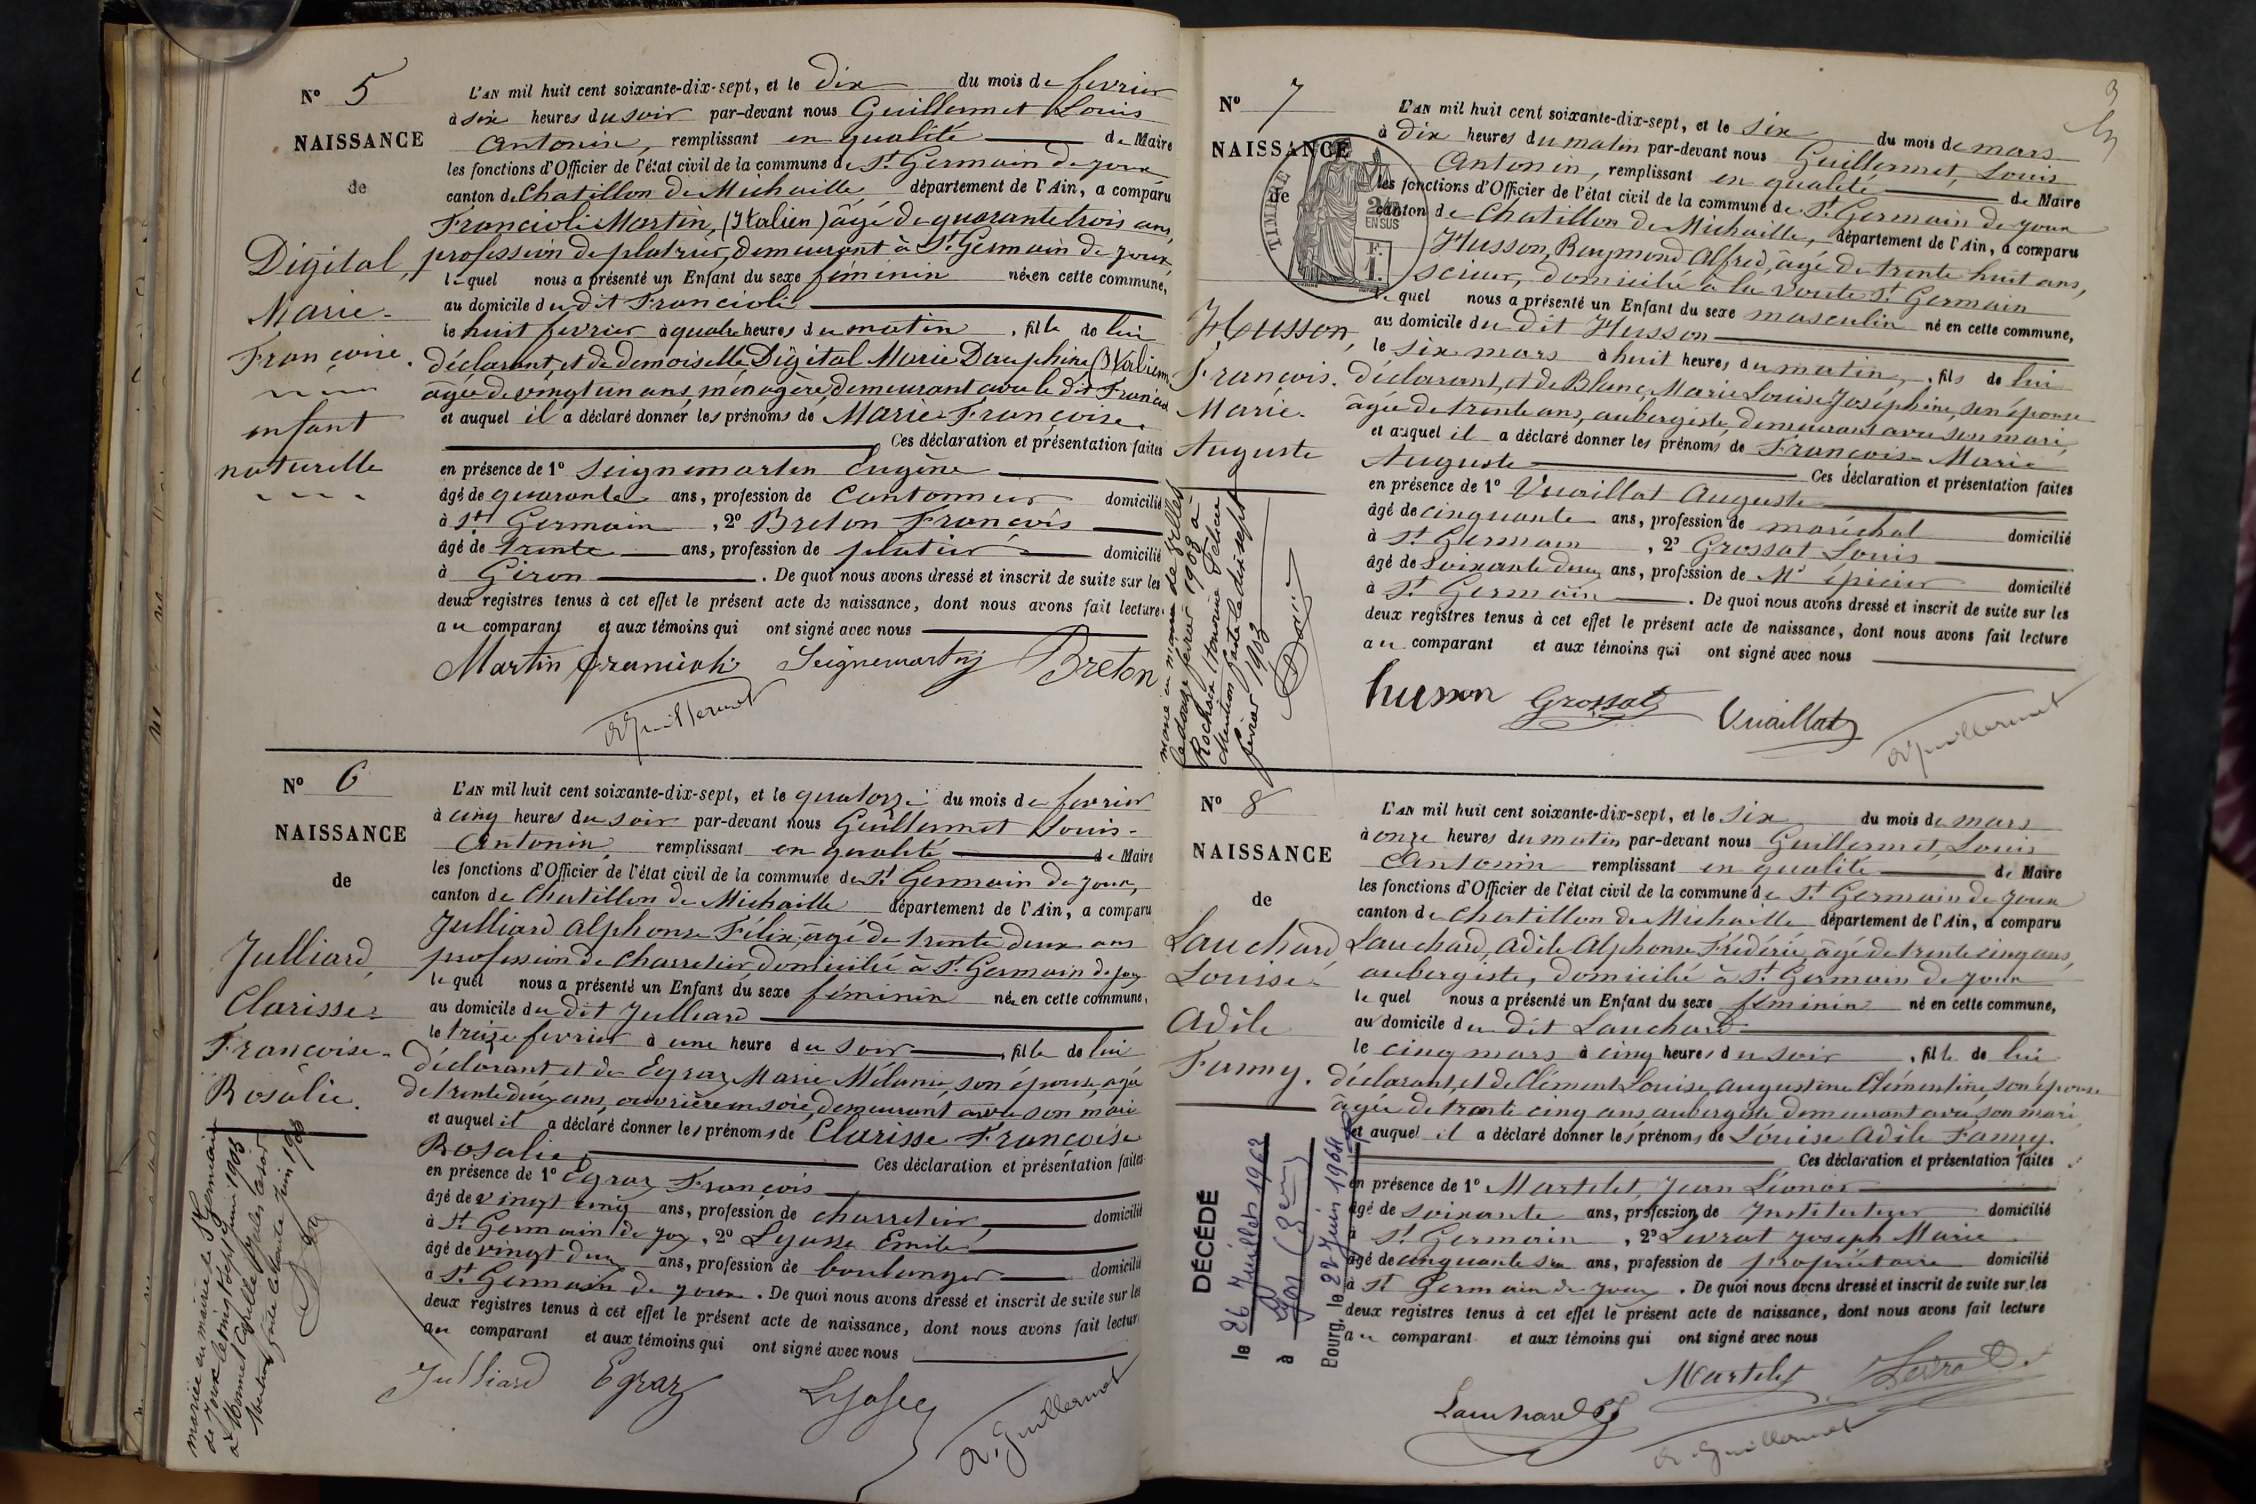 N° 5
NAISSANCE
de
Digital,
Marie-
Françoise.
enfant
naturelle
L'AN mil huit cent soixante-dix-sept, et le dix du mois de fevrier
à six heures du soir par-devant nous Guillermet Louis
Antonin, remplissant en qualité de Maire
les fonctions d'Officier de l'état civil de la commune de St Germain de joux
canton de Chatillon de Michaille département de l'Ain, a comparu
Francioli Martin, (Italien) âgé de quarante trois ans,
profession de platrier, demeurant à St Germain de joux
lequel nous a présenté un Enfant du sexe féminin née en cette commune,
au domicile du dit Francioli
le huit fevrier à quatre heures du matin, fille de lui
déclarant, et de demoiselle Digital Marie Dauphine (Italienne
âgée de vingt un ans, ménagère, demeurant avec le dit Francioli
et auquel il a déclaré donner les prénoms de Marie-Françoise.
Ces déclaration et présentation faites
en présence de 1° Seignemartin Eugène
âgé de quarante ans, profession de cantonnier domicilié
à St Germain, 2° Breton François
âgé de trente ans, profession de platrier domicilié
à Giron. De quoi nous avons dressé et inscrit de suite sur les
deux registres tenus à cet effet le présent acte de naissance, dont nous avons fait lecture
au comparant et aux témoins qui ont signé avec nous
Martin Francioli Seignemartin Breton
Guillermet
N° 6
NAISSANCE
de
Julliard,
Clarisse-
Françoise-
Rosalie.
mariée en mairie de St Germain
de joux le vingt sept juin 1903
à Jules César
Mention faite le trente juin 1903
L'AN mil huit cent soixante-dix-sept, et le quatorze du mois de fevrier
à cinq heures du soir par-devant nous Guillermet Louis-
Antonin, remplissant en qualité de Maire
les fonctions d'Officier de l'état civil de la commune de St Germain de joux,
canton de Chatillon de Michaille département de l'Ain, a comparu
Julliard Alphonse Félix, âgé de trente deux ans
profession de charretier, domicilié à St Germain de joux
lequel nous a présenté un Enfant du sexe féminin née en cette commune,
au domicile du dit Julliard
le treize fevrier à une heure du soir, fille de lui
déclarant et de Egraz Marie Mélanie, son épouse, agée
de trente deux ans, ouvrière en soie, demeurant avec son mari
et auquel il a déclaré donner les prénoms de Clarisse Françoise
Rosalie Ces déclaration et présentation faites
en présence de 1° Egraz François
âgé de vingt cinq ans, profession de charretier, domicilié
à St Germain de joux, 2° Lyasse Emile
âgé de vingt deux ans, profession de boulanger domicilié
à St Germain de joux. De quoi nous avons dressé et inscrit de suite sur les
deux registres tenus à cet effet le présent acte de naissance, dont nous avons fait lecture
au comparant et aux témoins qui ont signé avec nous
Julliard Egraz
Guillermet
3
N° 7
NAISSANCE
de
TIMBRE
2/10
EN SUS
F.
1.
Husson,
François.
Marie-
Auguste
marié en mairie de
le douze fevrier 1903 à
Rochaix Honorine
Mention faite le dix sept
fevrier 1903
L'AN mil huit cent soixante-dix-sept, et le six du mois de mars
à dix heures du matin par-devant nous Guillermet, Louis
Antonin, remplissant en qualité de Maire
les fonctions d'Officier de l'état civil de la commune de St Germain de joux
canton de Chatillon de Michaille, département de l'Ain, a comparu
Husson, Raymond Alfred, âgé de trente huit ans,
scieur, domicilié à la Voute St Germain
lequel nous a présenté un Enfant du sexe masculin né en cette commune,
au domicile du dit Husson
le six mars à huit heures du matin, fils de lui
déclarant, et de Blanc, Marie Louise Joséphine, son épouse
âgée de trente ans, aubergiste, demeurant avec son mari,
et auquel il a déclaré donner les prénoms de François-Marie
Auguste Ces déclaration et présentation faites
en présence de 1° Vuaillat Auguste
âgé de cinquante ans, profession de maréchal domicilié
à St Germain, 2° Grossat Louis
âgé de soixante deux ans, profession de Md épicier domicilié
à St Germain. De quoi nous avons dressé et inscrit de suite sur les
deux registres tenus à cet effet le présent acte de naissance, dont nous avons fait lecture
au comparant et aux témoins qui ont signé avec nous
husson Grossat Vuaillat
Guillermet
N° 8
NAISSANCE
de
Lauchard,
Louise-
Adèle
Fanny.
DÉCÉDÉ
le 26 Juillet 1963
à Lyon
Bourg, le 22 Juin 1964
L'AN mil huit cent soixante-dix-sept, et le six du mois de mars
à onze heures du matin par-devant nous Guillermet, Louis
Antonin remplissant en qualité de Maire
les fonctions d'Officier de l'état civil de la commune de St Germain de joux
canton de Chatillon de Michaille département de l'Ain, a comparu
Lauchard, Adèle Alphonse Frédéric, âgé de trente cinq ans,
aubergiste, domicilié à St Germain de joux
lequel nous a présenté un Enfant du sexe féminin né en cette commune,
au domicile du dit Lauchard
le cinq mars à cinq heures du soir, fille de lui
déclarant, et de Clément Louise, Augustine Clémentine, son épouse
âgée de trente cinq ans aubergiste demeurant avec son mari
et auquel il a déclaré donner les prénoms de Louise Adèle Fanny.
Ces déclaration et présentation faites
en présence de 1° Martelet, Jean Léonor
âgé de soixante ans, profession de Instituteur domicilié
à St Germain, 2° Levrat Joseph Marie
âgé de cinquante six ans, profession de propriétaire domicilié
à St Germain de joux. De quoi nous avons dressé et inscrit de suite sur les
deux registres tenus à cet effet le présent acte de naissance, dont nous avons fait lecture
au comparant et aux témoins qui ont signé avec nous
Martelet Levrat
Lauchard
Guillermet